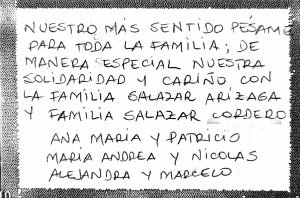 NUESTRO MÁS SENTIDO PÉSAME
PARA TODA LA FAMILIA; DE
MANERA ESPECIAL NUESTRA
SOLIDARIDAD Y CARIÑO CON
LA FAMILIA SALAZAR ARÍZAGA
Y FAMILIA SALAZAR CORDERO
ANA MARIA Y PATRICIO
MARÍA ANDREA Y NICOLAS
ALEJANDRA Y MARCELO